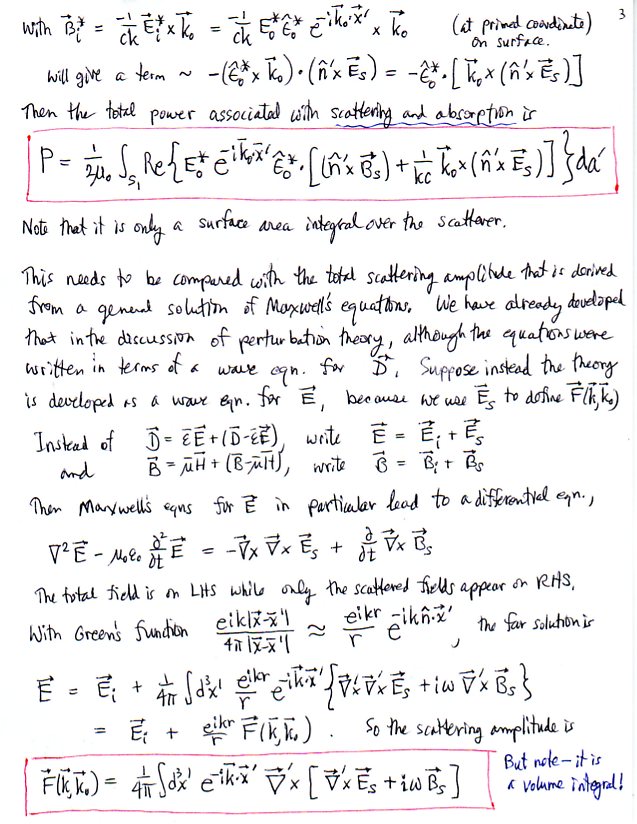 With B⃗ᵢ* = -1/ck E⃗ᵢ* × k⃗₀ = -1/ck E₀* ε̂₀* e^(-ik⃗₀·x⃗′) × k⃗₀ (at primed coordinate) 3
on surface.
will give a term ~ -(ε̂₀* × k⃗₀)·(n̂′× E⃗s) = -ε̂₀*·[k⃗₀×(n̂′× E⃗s)]
Then the total power associated with scattering and absorption is
P = 1/2μ₀ ∫_S₁ Re{E₀* e^(-ik⃗₀·x⃗′) ε̂₀*·[(n̂′× B⃗s) + 1/kc k⃗₀×(n̂′× E⃗s)]} da′
Note that it is only a surface area integral over the scatterer.
This needs to be compared with the total scattering amplitude that is derived
from a general solution of Maxwell's equations. We have already developed
that in the discussion of perturbation theory, although the equations were
written in terms of a wave eqn. for D⃗. Suppose instead the theory
is developed as a wave eqn. for E⃗, because we use E⃗s to define F⃗(k⃗,k⃗₀)
Instead of D⃗ = ε̄E⃗ + (D⃗-ε̄E⃗), write E⃗ = E⃗ᵢ + E⃗s
and B⃗ = μ̄H⃗ + (B⃗-μ̄H⃗), write B⃗ = B⃗ᵢ + B⃗s
Then Maxwell's eqns for E⃗ in particular lead to a differential eqn.,
∇²E⃗ - μ₀ε₀ ∂²/∂t E⃗ = -∇⃗× ∇⃗× E⃗s + ∂/∂t ∇⃗× B⃗s
The total field is on LHS while only the scattered fields appear on RHS.
With Green's function e^(ik|x⃗-x⃗′|)/4π|x⃗-x⃗′| ≈ e^(ikr)/r e^(-ikn̂·x⃗′), the far solution is
E⃗ = E⃗ᵢ + 1/4π ∫d³x′ e^(ikr)/r e^(-ik⃗·x⃗′) {∇⃗′×∇⃗′× E⃗s + iω ∇⃗′× B⃗s}
= E⃗ᵢ + e^(ikr)/r F⃗(k⃗,k⃗₀). So the scattering amplitude is
F⃗(k⃗,k⃗₀) = 1/4π ∫d³x′ e^(-ik⃗·x⃗′) ∇⃗′× [∇⃗′× E⃗s + iω B⃗s] But note - it is
a volume integral!